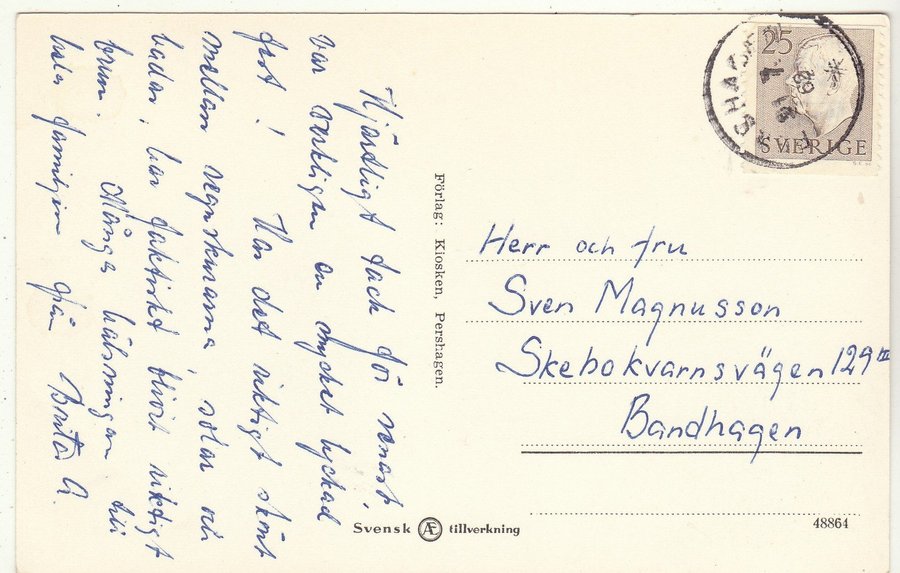 Hjärtligt tack för senast,
var verkligen en mycket lyckad
fest! Har det riktigt skönt
mellan regnskurarna, solar och
badar, har faktiskt blivit riktigt
brun. Många hälsningar till
hela familjen från Brita A.
Förlag: Kiosken, Pershagen.
25
SVERIGE
Herr och fru
Sven Magnusson
Skebokvarnsvägen 129 III
Bandhagen
Svensk Æ tillverkning
48864